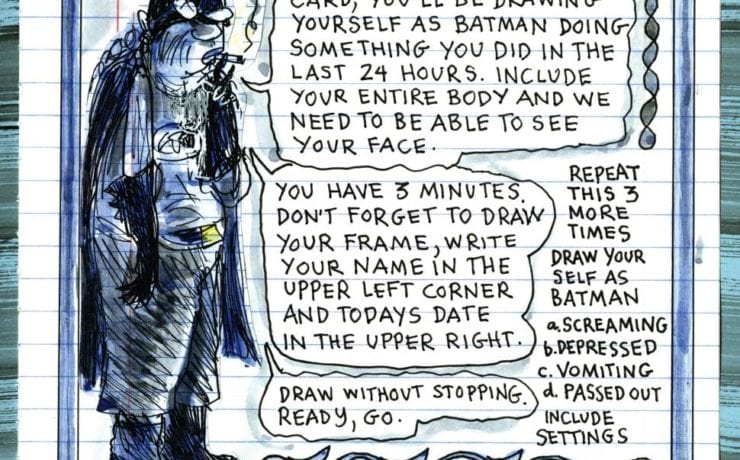 CARD, YOU'LL BE DRAWING
YOURSELF AS BATMAN DOING
SOMETHING YOU DID IN THE
LAST 24 HOURS. INCLUDE
YOUR ENTIRE BODY AND WE
NEED TO BE ABLE TO SEE
YOUR FACE.
YOU HAVE 3 MINUTES.
DON'T FORGET TO DRAW
YOUR FRAME, WRITE
YOUR NAME IN THE
UPPER LEFT CORNER
AND TODAYS DATE
IN THE UPPER RIGHT.
DRAW WITHOUT STOPPING.
READY, GO.
REPEAT
THIS 3
MORE
TIMES
DRAW YOUR
SELF AS
BATMAN
a. SCREAMING
b. DEPRESSED
c. VOMITING
d. PASSED OUT
INCLUDE
SETTINGS